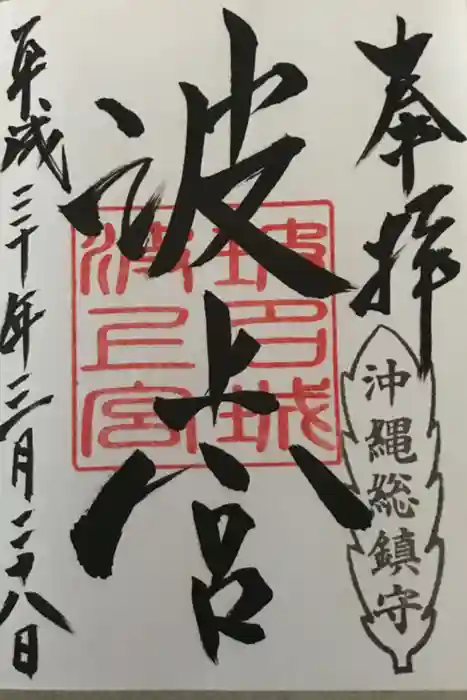 奉拝
沖縄総鎮守
波上宮
波上宮
平成三十年三月二十八日